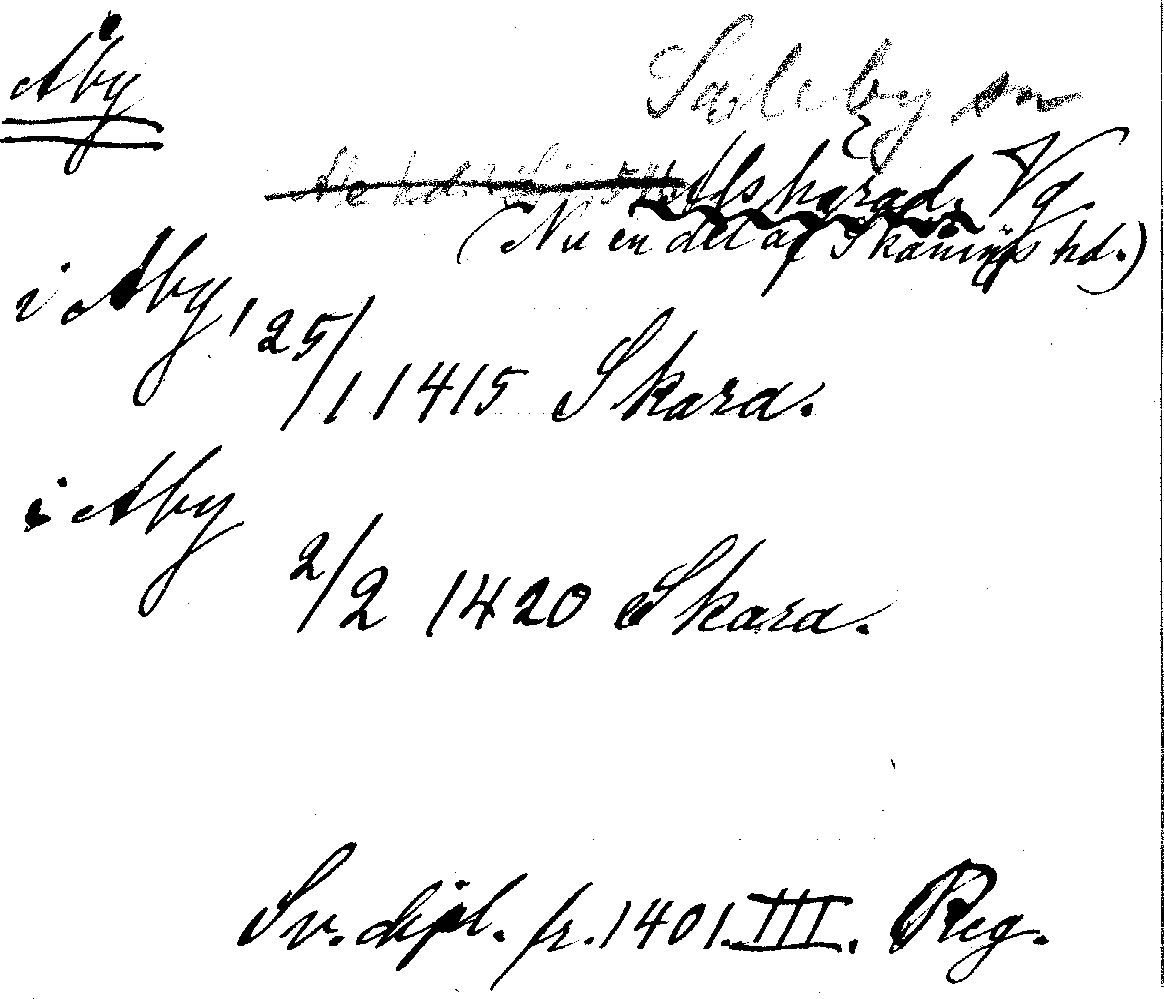 Åby
Saleby sn
Als härad. Vg
(Nu en del af Skånings hd.)
i Aby, 25/1 1415 Skara.
i Aby
2/2 1420 Skara.
Sv. dipl. fr. 1401. III. Reg.